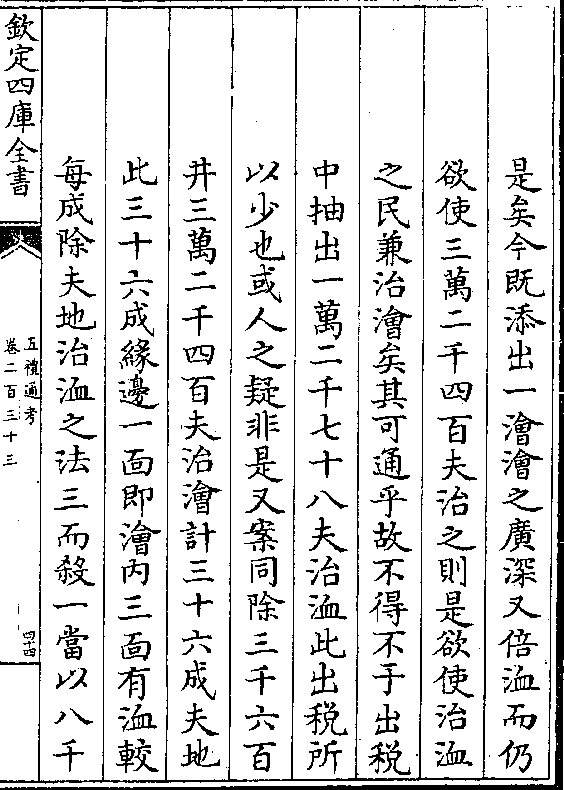 是矣今既添出一澮澮之廣深又倍洫而仍
欲使三萬二千四百夫治之則是欲使治洫
之民兼治澮矣其可通乎故不得不于出税
中抽出一萬二千七十八夫治洫此出税所
以少也或人之疑非是又案同除三千六百
井三萬二千四百夫治澮計三十六成夫地
此三十六成緣邊一面即澮内三面有洫較
每成除夫地治洫之法三而殺一當以八千
欽定四庫全書
五禮通考
卷二百三十三
四十四